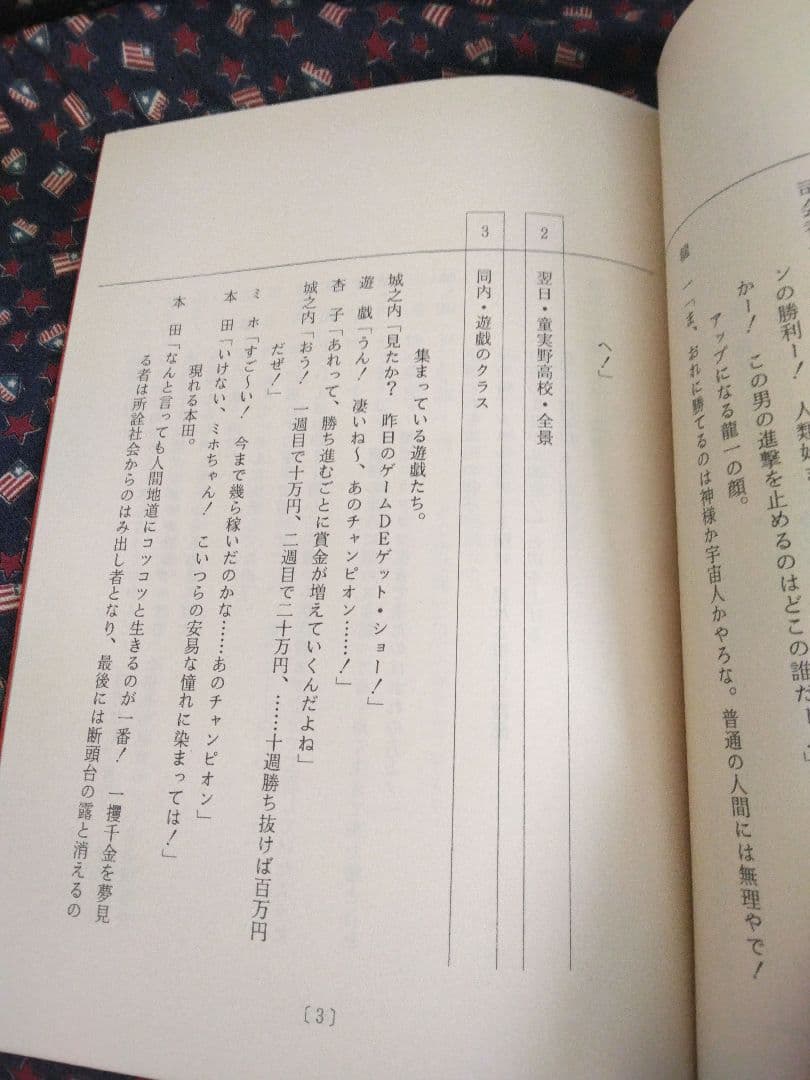 ンの勝利ー！　人類
かー！　この男の進撃を止めるのはどこの誰だー！」
アップになる龍一の顔。
龍　一「ま、おれに勝てるのは神様か宇宙人かやろな。普通の人間には無理やで！
へ！」
2　翌日・童実野高校・全景
3　同内・遊戯のクラス
集まっている遊戯たち。
城之内「見たか？　昨日のゲームDEゲット・ショー！」
遊　戯「うん！　凄いね〜、あのチャンピオン……！」
杏　子「あれって、勝ち進むごとに賞金が増えていくんだよね」
城之内「おう！　一週目で十万円、二週目で二十万円、……十週勝ち抜けば百万円
だぜ！」
ミ　ホ「すご〜い！　今まで幾ら稼いだのかな……あのチャンピオン」
本　田「いけない、ミホちゃん！　こいつらの安易な憧れに染まっては！」
現れる本田。
本　田「なんと言っても人間地道にコツコツと生きるのが一番！　一攫千金を夢見
る者は所詮社会からのはみ出し者となり、最後には断頭台の露と消えるの
〔3〕